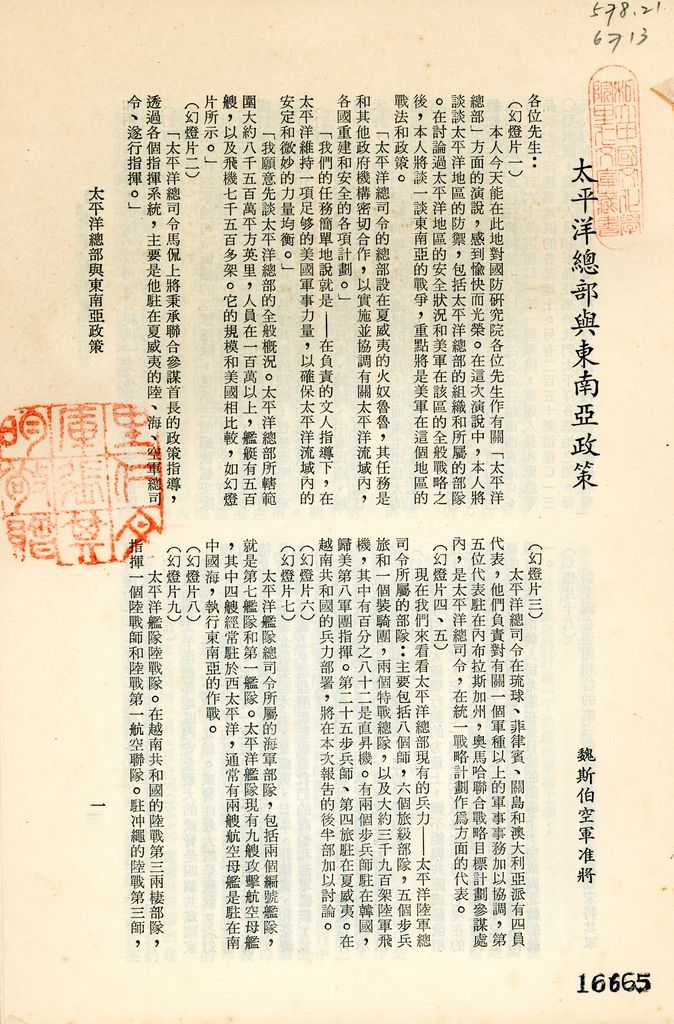 578.21
6713
太平洋總部與東南亞政策
魏斯伯空軍准將
各位先生：
（幻燈片一）
本人今天能在此地對國防研究院各位先生作有關「太平洋
總部」方面的演說，感到愉快而光榮。在這次演說中，本人將
談談太平洋地區的防禦，包括太平洋總部的組織和所屬的部隊
。在討論過太平洋地區的安全狀況和美軍在該區的全般戰略之
後，本人將談一談東南亞的戰爭，重點將是美軍在這個地區的
戰法和政策。
「太平洋總司令的總部設在夏威夷的火奴魯魯，其任務是
和其他政府機構密切合作，以實施並協調有關太平洋流域內，
各國重建和安全的各項計劃。」
「我們的任務簡單地說就是——在負責的文人指導下，在
太平洋維持一項足够的美國軍事力量，以確保太平洋流域內的
安定和微妙的力量均衡。」
「我願意先談太平洋總部的全般概況。太平洋總部所轄範
圍大約八千五百萬平方英里，人員在一百萬以上，艦艇有五百
艘，以及飛機七千五百多架。它的規模和美國相比較，如幻燈
片所示。」
（幻燈片二）
「太平洋總司令馬侃上將秉承聯合參謀首長的政策指導，
透過各個指揮系統，主要是他駐在夏威夷的陸、海、空軍總司
令、遂行指揮。」
（幻燈片三）
太平洋總司令在琉球、菲律賓、關島和澳大利亞派有四員
代表，他們負責對有關一個軍種以上的軍事事務加以協調，第
五位代表駐在內布拉斯加州，奧馬哈聯合戰略目標計劃參謀處
內，是太平洋總司令，在統一戰略計劃作爲方面的代表。
（幻燈片四、五）
現在我們來看看太平洋總部現有的兵力——太平洋陸軍總
司令所屬的部隊：主要包括八個師，六個旅級部隊，五個步兵
旅和一個裝騎團，兩個特戰總隊，以及大約三千九百架陸軍飛
機，其中有百分之八十二是直昇機。有兩個步兵師駐在韓國，
歸美第八軍團指揮。第二十五步兵師、第四旅駐在夏威夷。在
越南共和國的兵力部署，將在本次報告的後半部加以討論。
（幻燈片六）
（幻燈片七）
太平洋艦隊總司令所屬的海軍部隊，包括兩個編號艦隊，
就是第七艦隊和第一艦隊。太平洋艦隊現有九艘攻擊航空母艦
，其中四艘經常駐於西太平洋，通常有兩艘航空母艦是駐在南
中國海，執行東南亞的作戰。
（幻燈片八）
（幻燈片九）
太平洋艦隊陸戰隊。在越南共和國的陸戰第三兩棲部隊，
指揮一個陸戰師和陸戰第一航空聯隊。駐冲繩的陸戰第三師，
太平洋總部與東南亞政策
一
16665